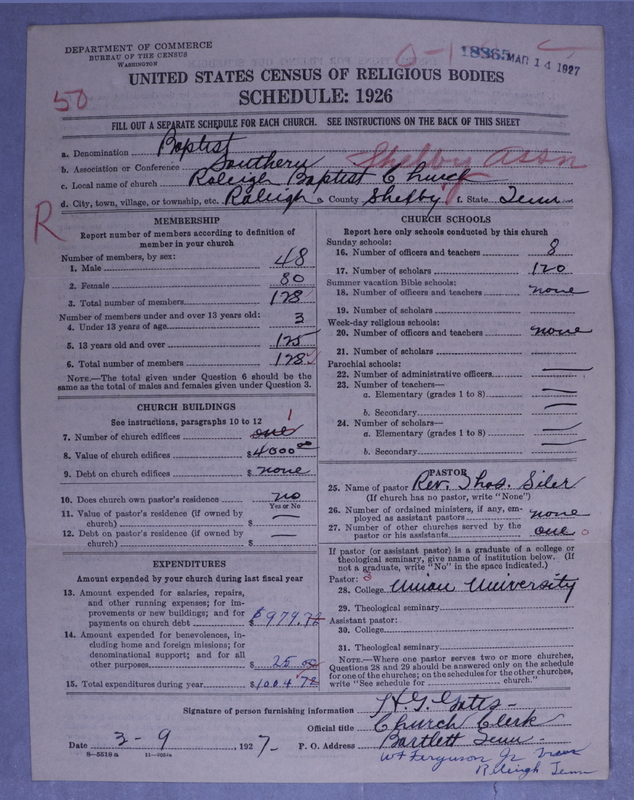 DEPARTMENT OF COMMERCE
BUREAU OF THE CENSUS
WASHINGTON
18365 MAR 14 1927
UNITED STATES CENSUS OF RELIGIOUS BODIES
SCHEDULE: 1926
50
FILL OUT A SEPARATE SCHEDULE FOR EACH CHURCH. SEE INSTRUCTIONS ON THE BACK OF THIS SHEET
a. Denomination Baptist
b. Association or Conference Southern Shelby Assn
c. Local name of church Raleigh Baptist Church
d. City, town, village, or township, etc. Raleigh e. County Shelby f. State Tenn
R
MEMBERSHIP
Report number of members according to definition of
member in your church
Number of members, by sex:
1. Male 48
2. Female 80
3. Total number of members 128
Number of members under and over 13 years old:
4. Under 13 years of age 3
5. 13 years old and over 125
6. Total number of members 128
NOTE.—The total given under Question 6 should be the
same as the total of males and females given under Question 3.
CHURCH BUILDINGS
See instructions, paragraphs 10 to 12
7. Number of church edifices one 1
8. Value of church edifices $ 4000.00
9. Debt on church edifices $ none
10. Does church own pastor's residence no
Yes or No
11. Value of pastor's residence (if owned by
church) $ —
12. Debt on pastor's residence (if owned by
church) $ —
EXPENDITURES
Amount expended by your church during last fiscal year
13. Amount expended for salaries, repairs,
and other running expenses; for im-
provements or new buildings; and for
payments on church debt $ 979.72
14. Amount expended for benevolences, in-
cluding home and foreign missions; for
denominational support; and for all
other purposes $ 25.00
15. Total expenditures during year $ 1004.72
CHURCH SCHOOLS
Report here only schools conducted by this church
Sunday schools:
16. Number of officers and teachers 8
17. Number of scholars 120
Summer vacation Bible schools:
18. Number of officers and teachers none
19. Number of scholars
Week-day religious schools:
20. Number of officers and teachers none
21. Number of scholars
Parochial schools:
22. Number of administrative officers —
23. Number of teachers—
a. Elementary (grades 1 to 8) —
b. Secondary —
24. Number of scholars—
a. Elementary (grades 1 to 8) —
b. Secondary —
PASTOR
25. Name of pastor Rev. Thos. Siler
(If church has no pastor, write "None")
26. Number of ordained ministers, if any, em-
ployed as assistant pastors none
27. Number of other churches served by the
pastor or his assistants one
If pastor (or assistant pastor) is a graduate of a college or
theological seminary, give name of institution below. (If
not a graduate, write "No" in the space indicated.)
Pastor: 3
28. College Union University
29. Theological seminary
Assistant pastor:
30. College
31. Theological seminary
NOTE.—Where one pastor serves two or more churches,
Questions 28 and 29 should be answered only on the schedule
for one of the churches; on the schedules for the other churches,
write "See schedule for church."
Signature of person furnishing information H. G. Gatts
Official title Church Clerk
Date 3-9, 1927- P. O. Address Bartlett Tenn
8-5518 a
W F Ferguson Jr Treas
Raleigh Tenn